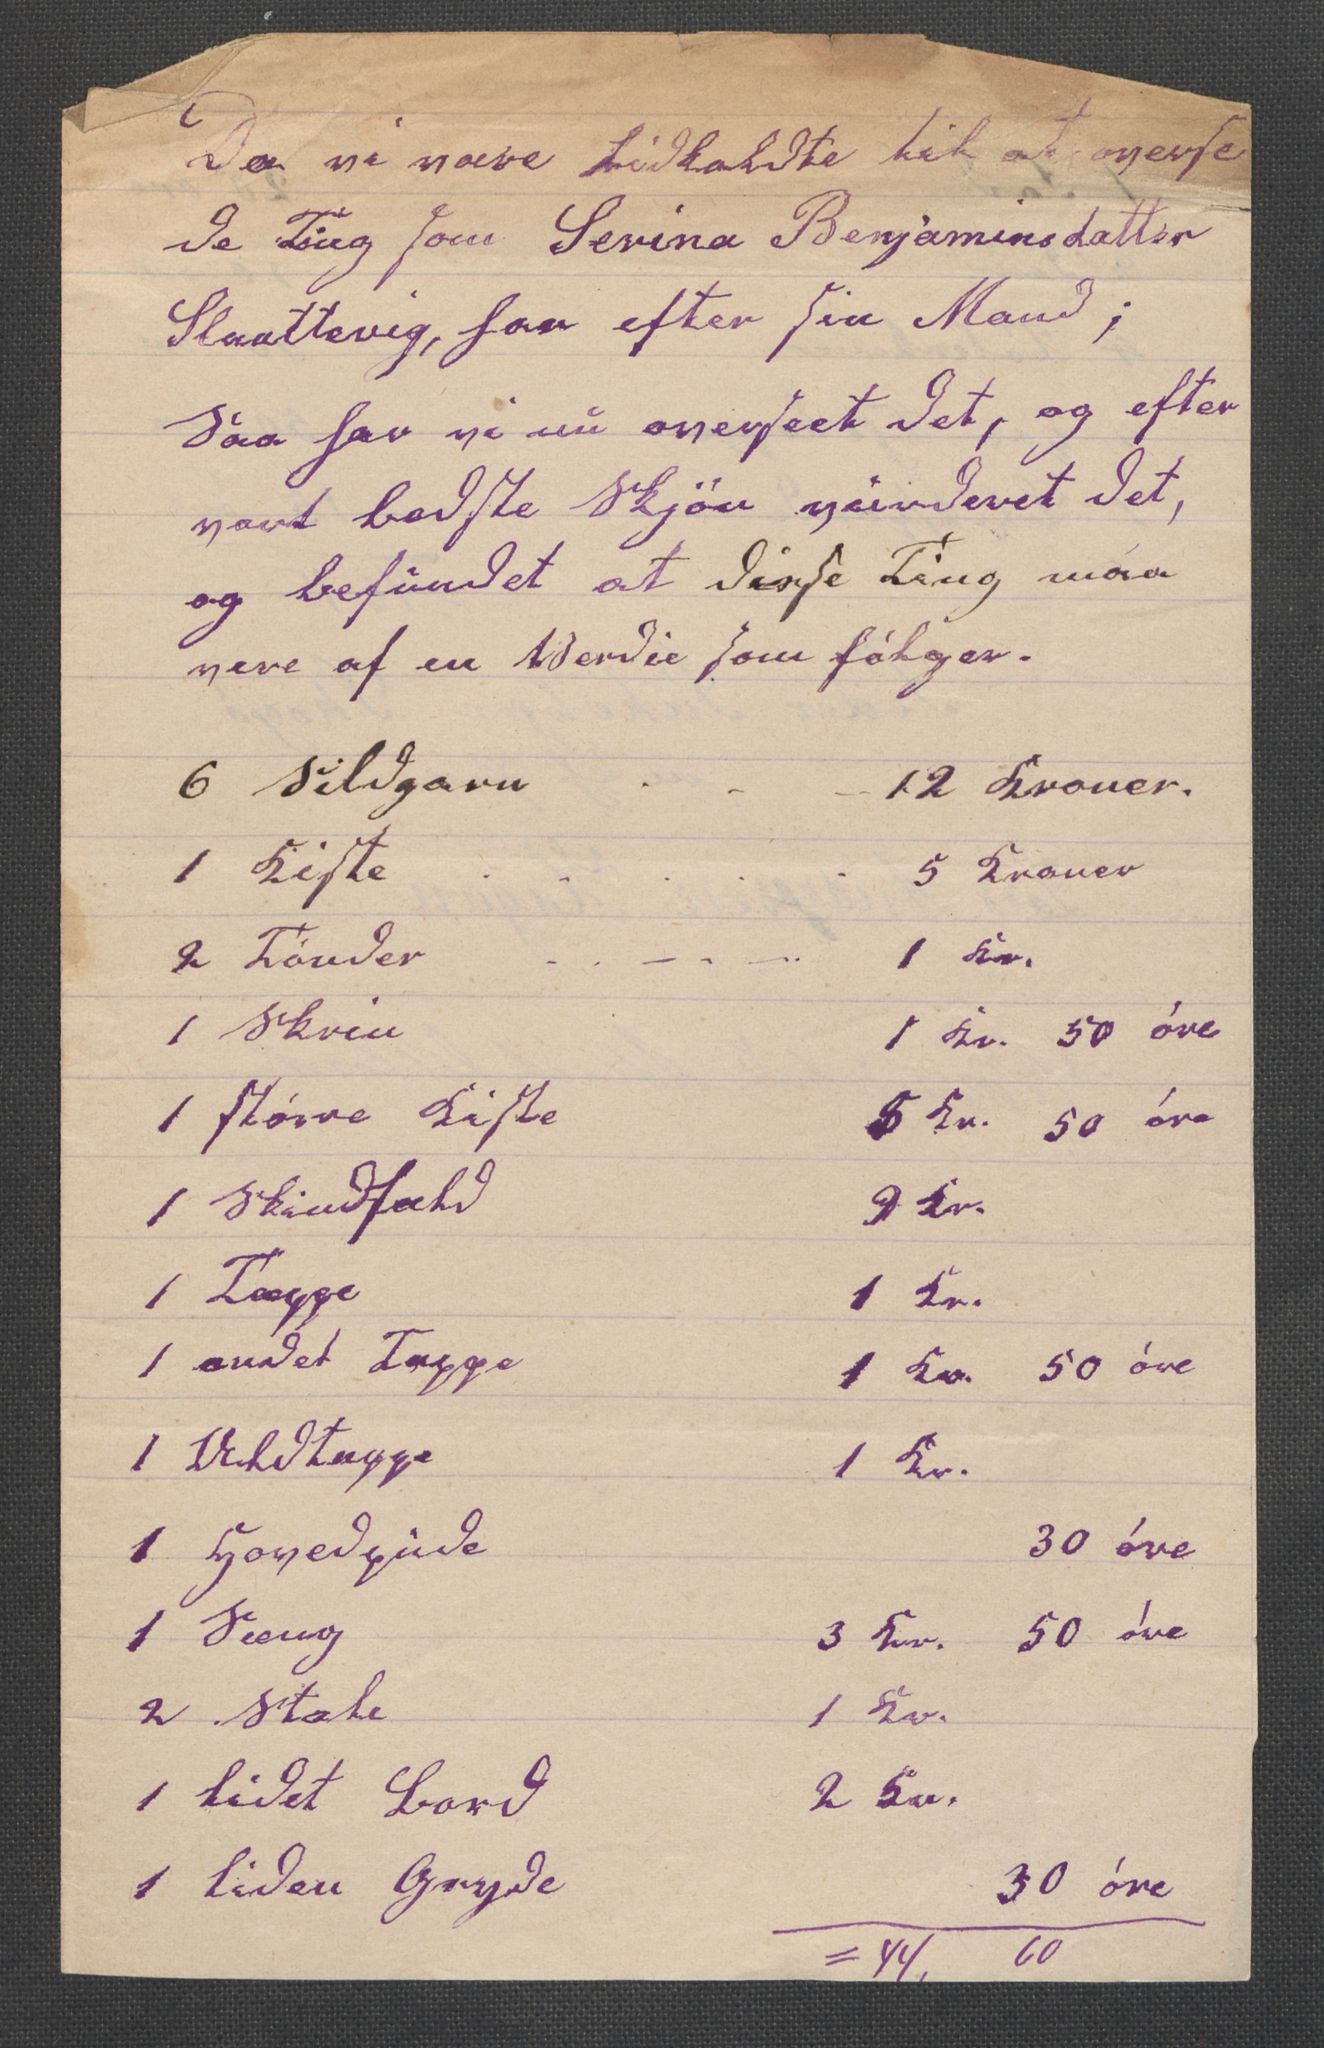 Da vi vare tidkaldte til at overse
de Ting som Serina Benjaminsdatter
Slaattevig, har efter sin Mand;
Saa har vi nu overseet det, og efter
vart bedste Skjön vürderet det,
og befundet at disse Ting máa
vere af en Verdie som fólger.
6 Sildgarn . - - 12 Kroner.
1 Kiste . . . . . 5 Kroner
2 Tónder - . - . - .. 1 Kr.
1 Skrin 1 Kr. 50 óre
1 stórre Kiste 5 Kr. 50 óre
1 Skindfæld 9 Kr.
1 Tæppe 1 Kr.
1 andet Tæppe 1 Kr. 50 óre
1 Uldtæppe 1 Kr.
1 Hovedpude 30 óre
1 Sæng 3 Kr. 50 óre
2 Stole 1 Kr.
1 lidet Bord 2 Kr.
1 liden Gryde 30 óre
= 44, 60